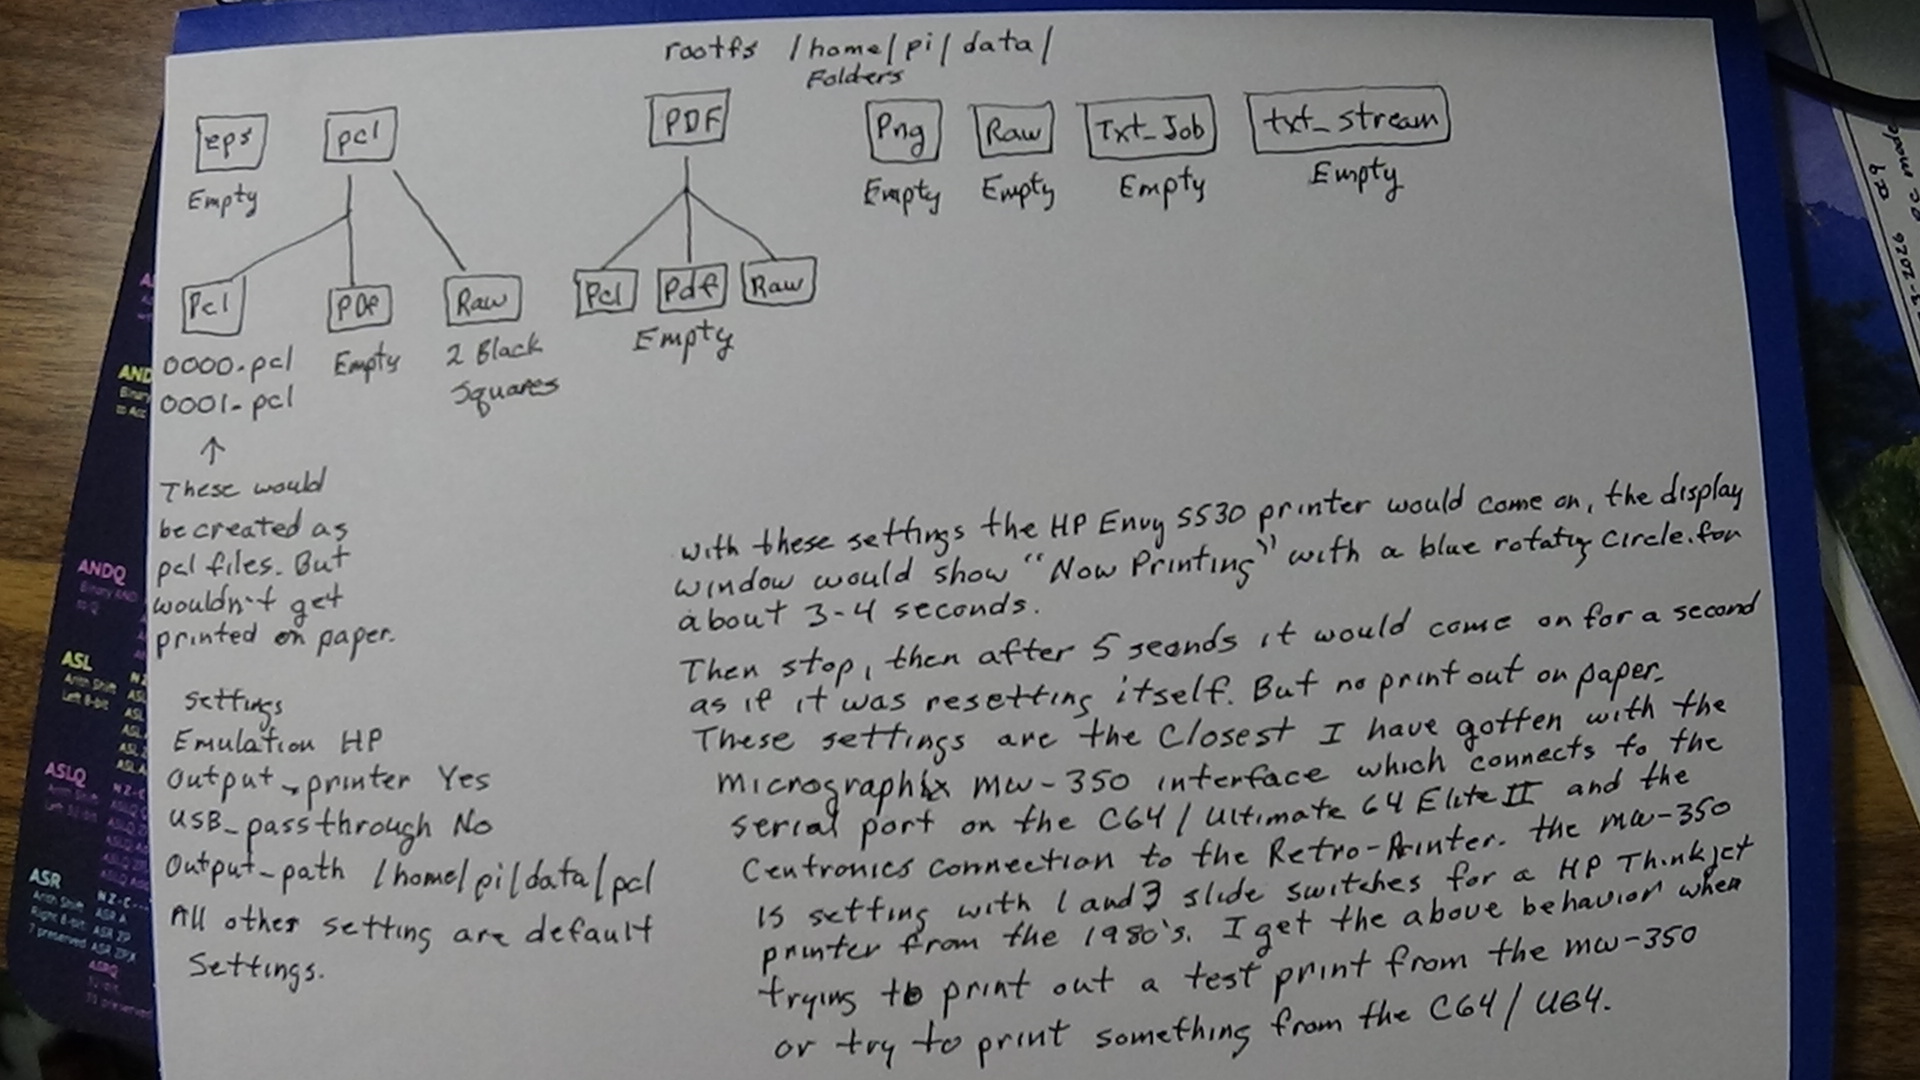 rootfs /home/pi/data/
Folders
eps
pcl
PDF
Png
Raw
Txt_Job
txt_stream
Empty
Empty
Empty
Empty
Empty
Pcl
PDF
Raw
Pcl
Pdf
Raw
0000.pcl
0001.pcl
Empty
2 Black
Squares
Empty
↑
These would
be created as
pcl files. But
wouldn't get
printed on paper.
settings
Emulation HP
Output_printer Yes
USB_passthrough No
Output_path /home/pi/data/pcl
All other setting are default
Settings.
with these settings the HP Envy 5530 printer would come on, the display
window would show "Now Printing" with a blue rotatig circle.for
about 3-4 seconds.
Then stop, then after 5 seonds it would come on for a second
as if it was resetting itself. But no print out on paper.
These settings are the Closest I have gotten with the
Micrographix mw-350 interface which connects to the
serial port on the C64/Ultimate 64 Elite II and the
Centronics connection to the Retro-Printer. the mw-350
is setting with 1 and 3 slide switches for a HP Thinkjet
printer from the 1980's. I get the above behavior when
trying to print out a test print from the mw-350
or try to print something from the C64/U64.
AND
Binary
to Acc
ANDQ
Binary AND
to Q
ASL
Arith Shift
Left 8-bit
ASLQ
ASR
Arith Shift
Right 8-bit
7 preserved
NZ-C---
ASR A
ASR ZP
ASR ZPX
ASRQ